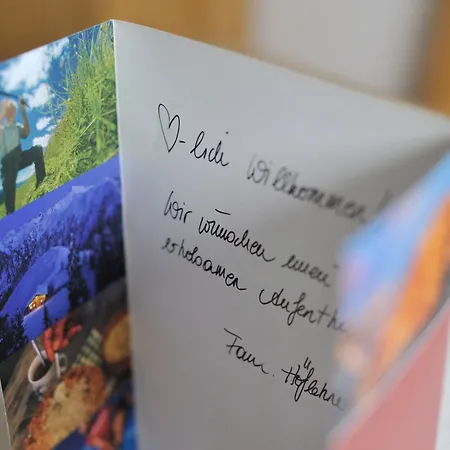 ♡-lich Willkommen!
Wir wünschen einen
erholsamen Aufenth
Fam.